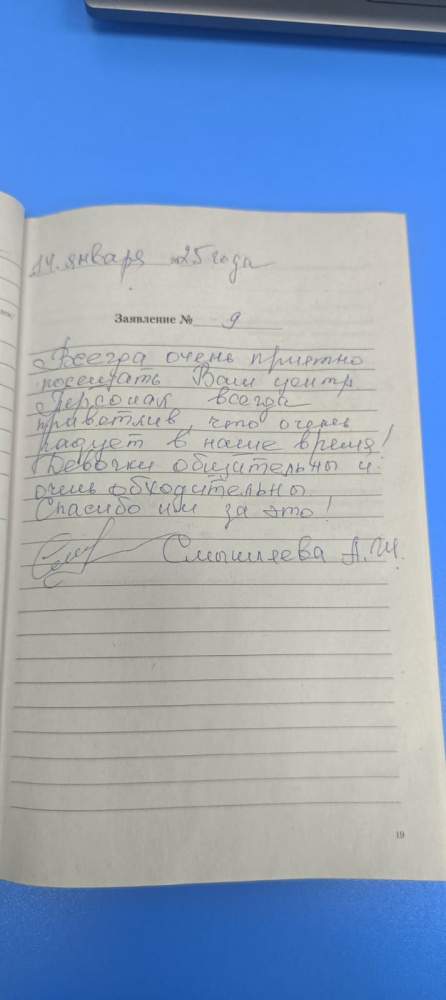 14. января 25 года
Заявление № 9
Всегда очень приятно
посещать Ваш центр
Персонал всегда
приветлив, что очень
радует в наше время!
Девочки общительны и
очень обходительны.
Спасибо им за это!
Смышляева А.Ш.
19